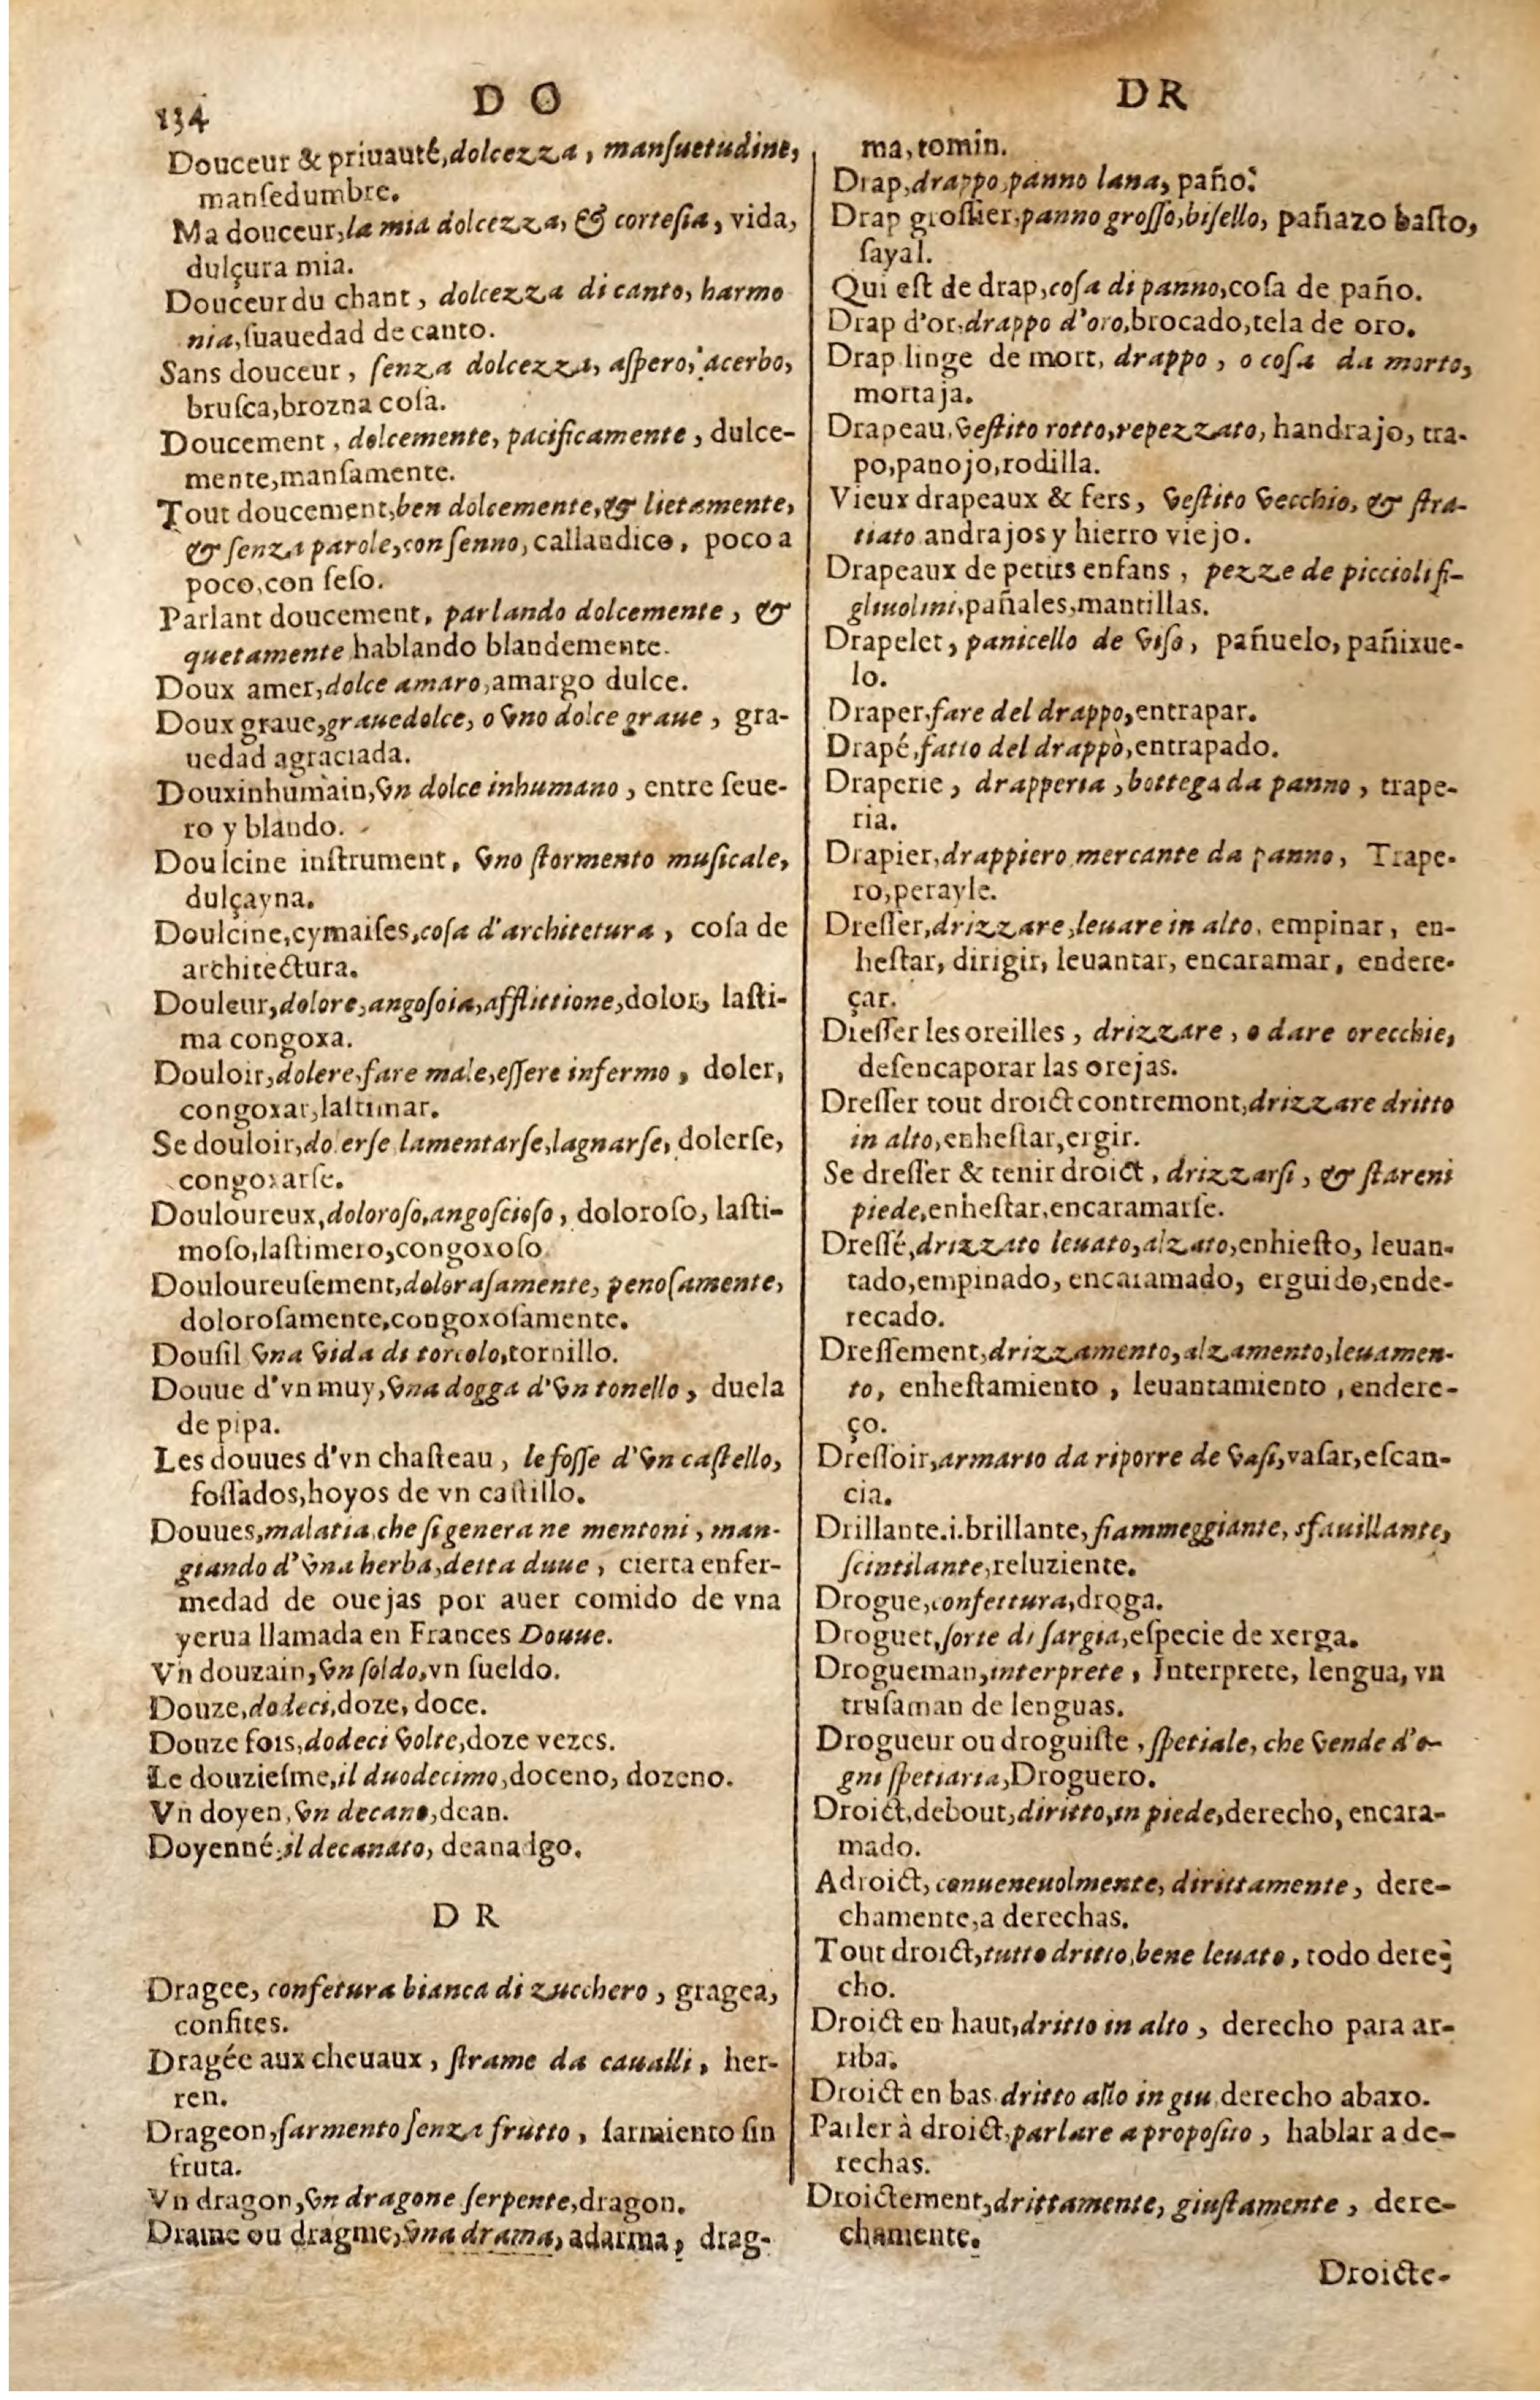 134
D O
Douceur & priuauté, dolcezza, mansuetudine,
mansedumbre.
Ma douceur, la mia dolcezza, & cortesia, vida,
dulçura mia.
Douceur du chant, dolcezza di canto, harmo
nia, suauedad de canto.
Sans douceur, senza dolcezza, aspero, acerbo,
brusca, brozna cosa.
Doucement, dolcemente, pacificamente, dulce-
mente, mansamente.
Tout doucement, ben dolcemente, & lietamente,
& senza parole, con senno, callandico, poco a
poco, con seso.
Parlant doucement, parlando dolcemente, &
quetamente hablando blandemente.
Doux amer, dolce amaro, amargo dulce.
Doux graue, graue dolce, o vno dolce graue, gra-
uedad agraciada.
Doux inhumain, vn dolce inhumano, entre seue-
ro y blando.
Doulcine instrument, vno stormento musicale,
dulçayna.
Doulcine, cymaises, cosa d'architetura, cosa de
architectura.
Douleur, dolore, angosoia, afflittione, dolor, lasti-
ma congoxa.
Douloir, dolere, fare male, essere infermo, doler,
congoxar, lastimar.
Se douloir, dolerse lamentarse, lagnarse, dolerse,
congoxarse.
Douloureux, doloroso, angoscioso, doloroso, lasti-
moso, lastimero, congoxoso
Douloureusement, dolorasamente, penosamente,
dolorosamente, congoxosamente.
Dousil vna vida di torcolo, tornillo.
Douue d'vn muy, vna dogga d'vn tonello, duela
de pipa.
Les douues d'vn chasteau, le fosse d'vn castello,
fossados, hoyos de vn castillo.
Douues, malatia che si genera ne mentoni, man-
giando d'vna herba, detta duue, cierta enfer-
medad de ouejas por auer comido de vna
yerua llamada en Frances Douue.
Vn douzain, vn soldo, vn sueldo.
Douze, dodeci, doze, doce.
Douze fois, dodeci volte, doze vezes.
Le douziesme, il duodecimo, doceno, dozeno.
Vn doyen, vn decano, dean.
Doyenné, il decanato, deanadgo.
D R
Dragee, confetura bianca di zucchero, gragea,
confites.
Dragée aux cheuaux, strame da caualli, her-
ren.
Drageon, sarmento senza frutto, sarmiento sin
fruta.
Vn dragon, vn dragone serpente, dragon.
Drame ou dragme, vna drama, adarma, drag-
DR
ma, tomin.
Drap, drappo, panno lana, paño.
Drap grossier, panno grosso, bisello, pañazo basto,
sayal.
Qui est de drap, cosa di panno, cosa de paño.
Drap d'or, drappo d'oro, brocado, tela de oro.
Drap linge de mort, drappo, o cosa da morto,
mortaja.
Drapeau, vestito rotto, repezzato, handrajo, tra-
po, panojo, rodilla.
Vieux drapeaux & fers, vestito vecchio, & stra-
tiato andrajos y hierro viejo.
Drapeaux de petits enfans, pezze de piccioli fi-
gliuolini, pañales, mantillas.
Drapelet, panicello de viso, pañuelo, pañixue-
lo.
Draper, fare del drappo, entrapar.
Drapé, fatto del drappo, entrapado.
Draperie, drapperia, bottega da panno, trape-
ria.
Drapier, drappiero mercante da panno, Trape-
ro, perayle.
Dresser, drizzare, leuare in alto, empinar, en-
hestar, dirigir, leuantar, encaramar, endere-
çar.
Dresser les oreilles, drizzare, o dare orecchie,
desencaporar las orejas.
Dresser tout droict contremont, drizzare dritto
in alto, enhestar, ergir.
Se dresser & tenir droict, drizzarsi, & stareni
piede, enhestar, encaramarse.
Dressé, drizzato leuato, alzato, enhiesto, leuan-
tado, empinado, encaramado, erguido, ende-
recado.
Dressement, drizzamento, alzamento, leuamen-
to, enhestamiento, leuantamiento, endere-
ço.
Dressoir, armario da riporre de vasi, vasar, escan-
cia.
Drillante.i.brillante, fiammeggiante, sfauillante,
scintilante, reluziente.
Drogue, confettura, droga.
Droguet, sorte di sargia, especie de xerga.
Drogueman, interprete, Interprete, lengua, vn
trusaman de lenguas.
Drogueur ou droguiste, spetiale, che vende d'o-
gni spetiaria, Droguero.
Droict, debout, diritto, in piede, derecho, encara-
mado.
Adroict, conueneuolmente, dirittamente, dere-
chamente, a derechas.
Tout droict, tutto dritto, bene leuato, todo dere-
cho.
Droict en haut, dritto in alto, derecho para ar-
riba.
Droict en bas dritto allo in giu derecho abaxo.
Parler à droict, parlare a proposito, hablar a de-
rechas.
Droictement, drittamente, giustamente, dere-
chamente.
Droicte-